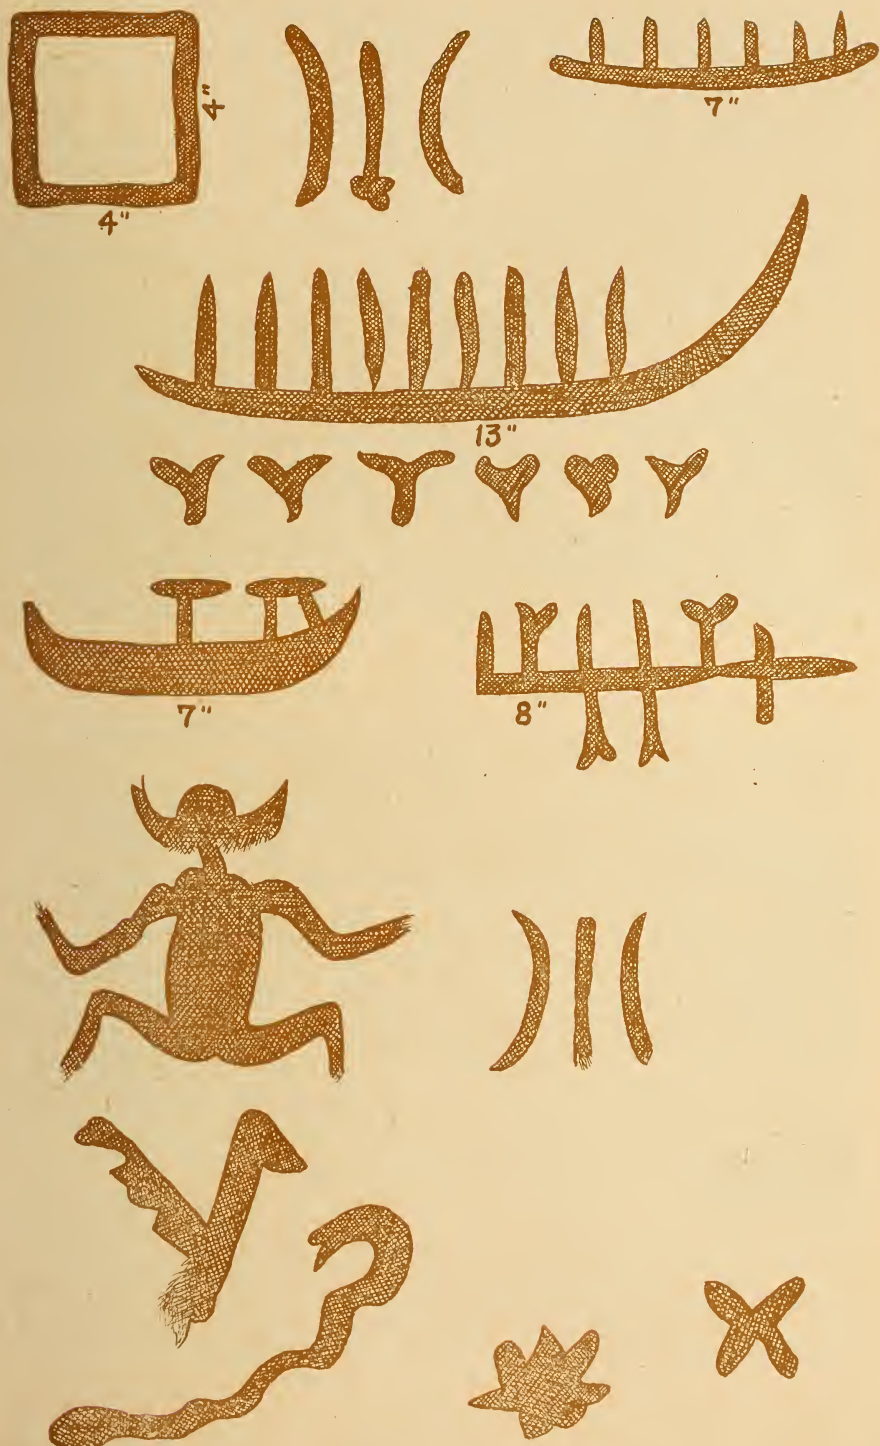 4"
4"
7"
13"
7"
8"